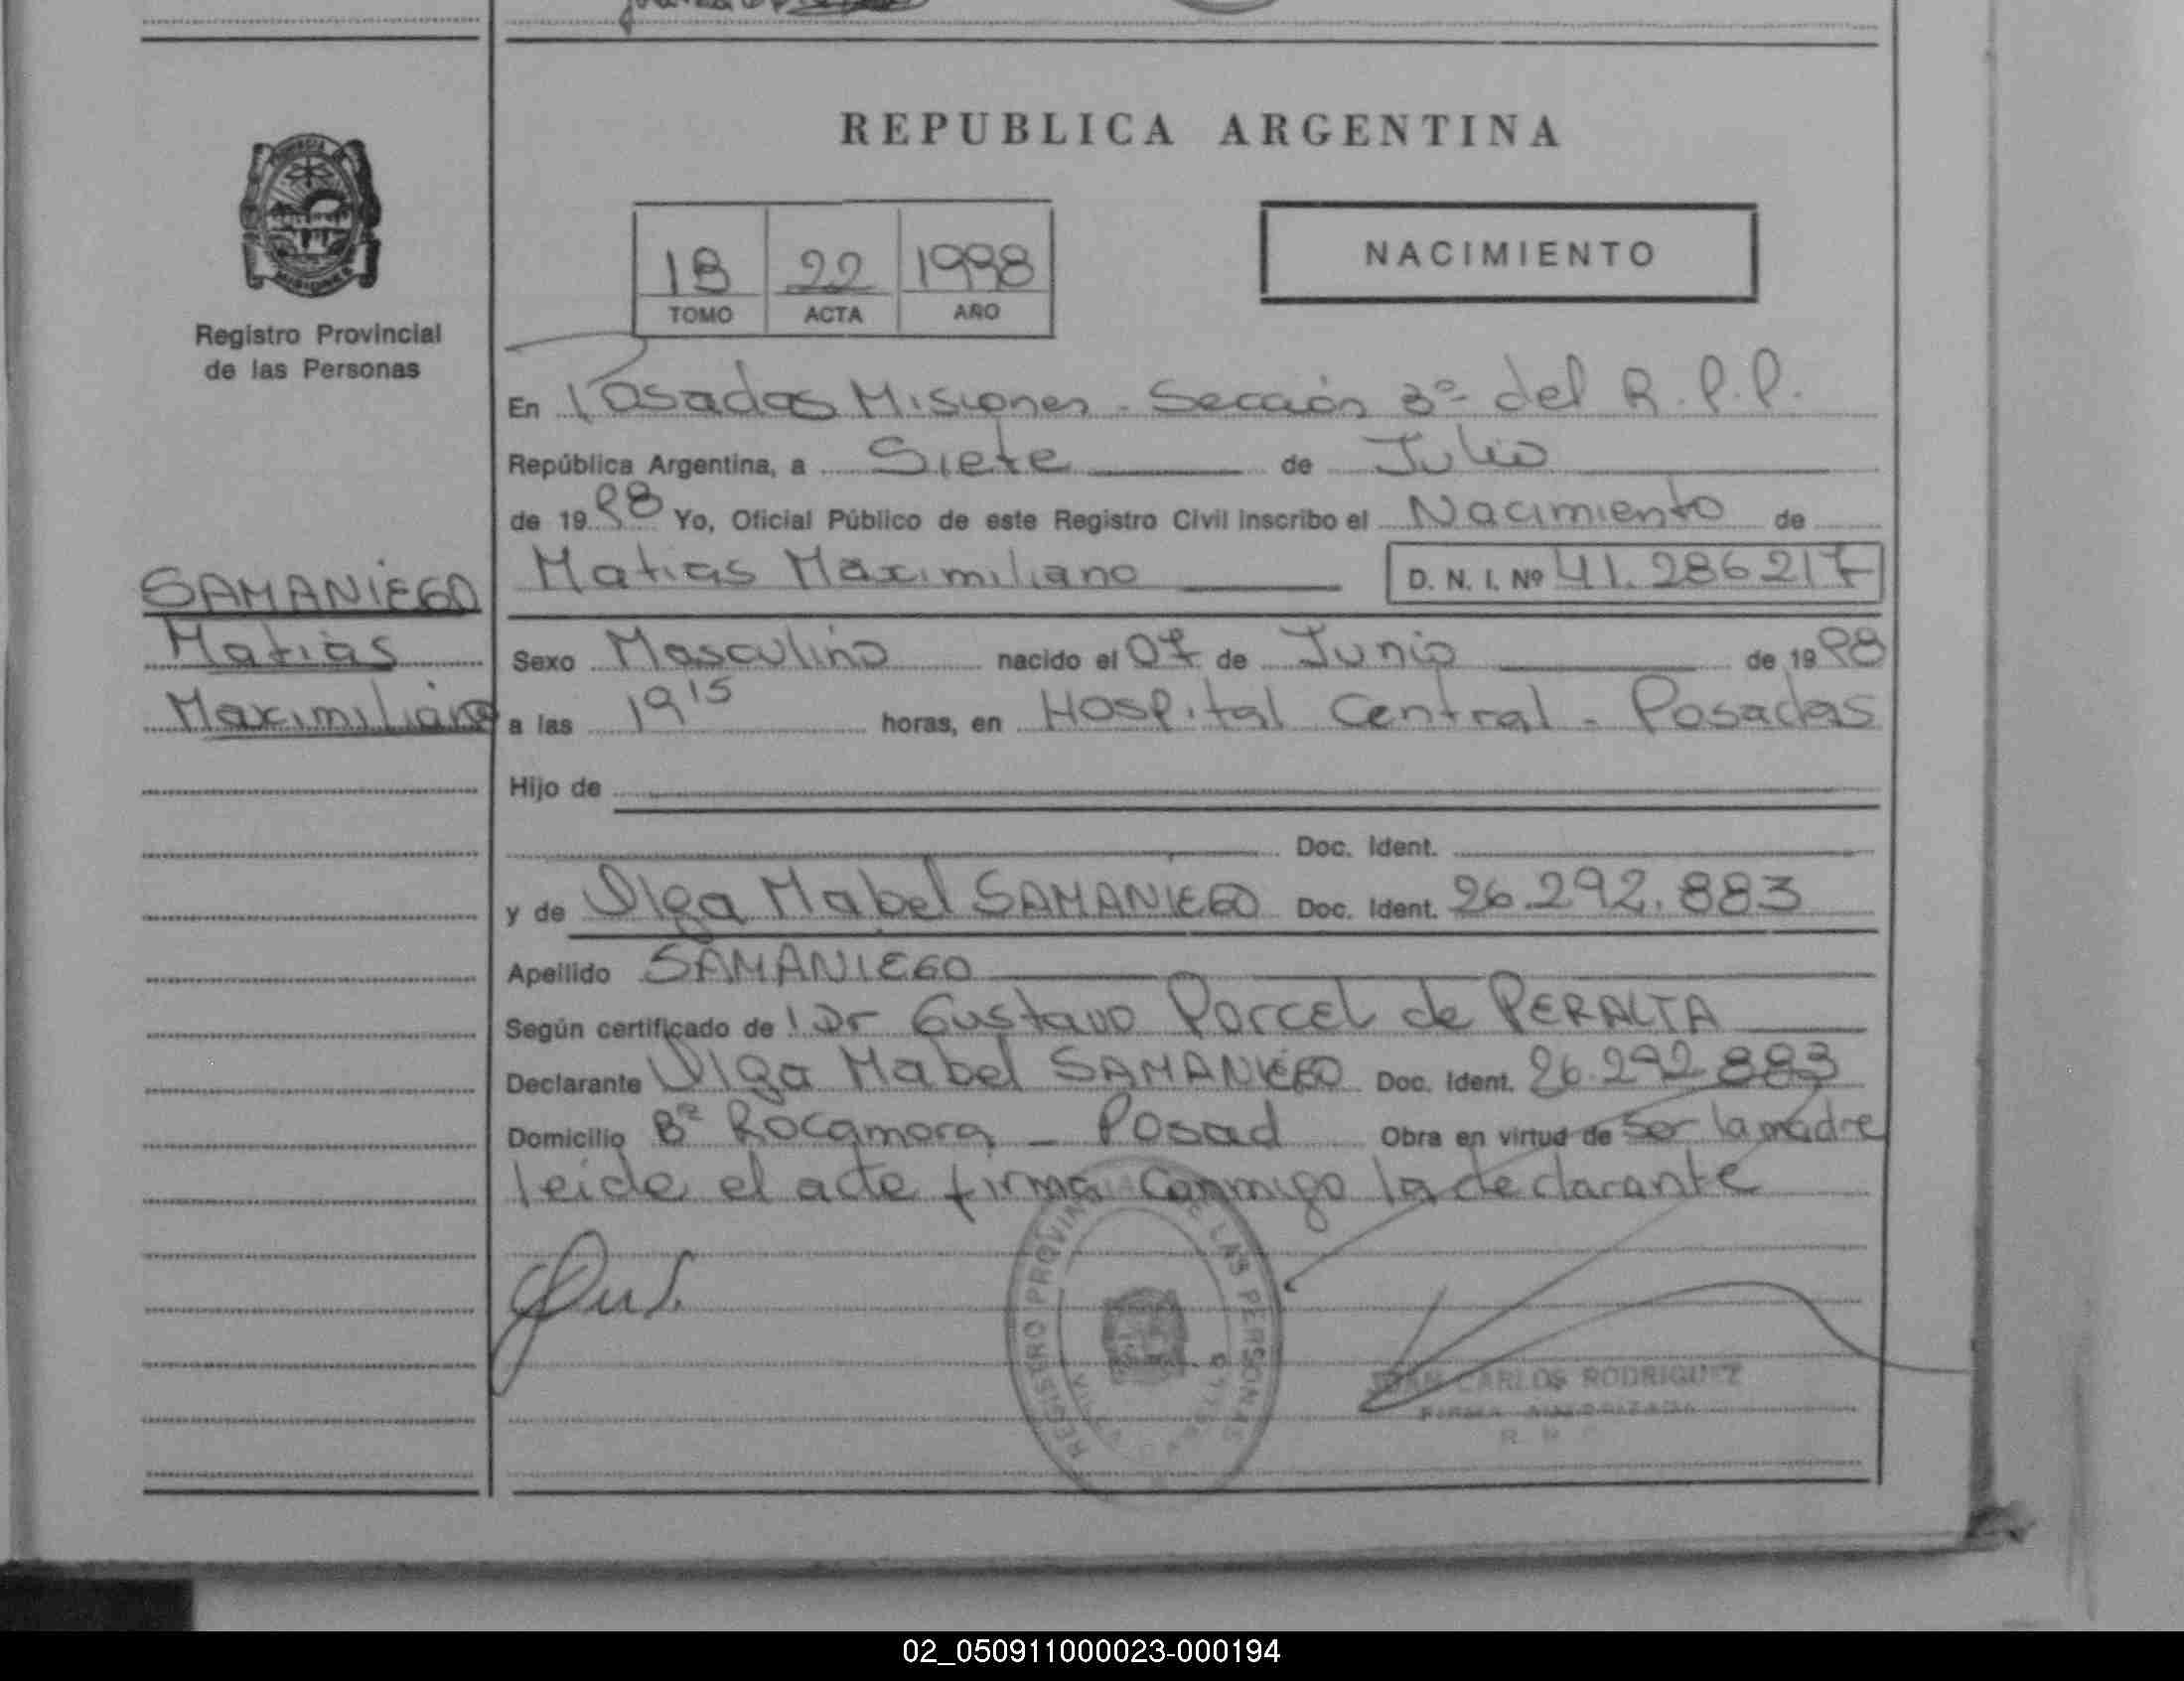 REPUBLICA ARGENTINA
Registro Provincial
de las Personas
1B 22 1998
TOMO ACTA AÑO
NACIMIENTO
En Posadas Misiones - Sección 3ª del R.P.P.
República Argentina, a Siete de Julio
de 1998 Yo, Oficial Público de este Registro Civil inscribo el Nacimiento de
Matias Maximiliano D. N. I. Nº 41.286217
SAMANIEGO
Matias
Maximiliano
Sexo Masculino nacido el 07 de Junio de 1998
a las 19 15 horas, en Hospital Central - Posadas
Hijo de
Doc. Ident.
y de Olga Mabel SAMANIEGO Doc. Ident. 26.292.883
Apellido SAMANIEGO
Según certificado de l Dr Gustavo Porcel de PERALTA
Declarante Olga Mabel SAMANIEGO Doc. Ident. 26.292.883
Domicilio Bº Rocamora - Posad Obra en virtud de ser la madre
leida el acta firma conmigo la declarante
REGISTRO PROVINCIAL DE LAS PERSONAS
JUAN CARLOS RODRIGUEZ
FIRMA AUTORIZADA
02_050911000023-000194